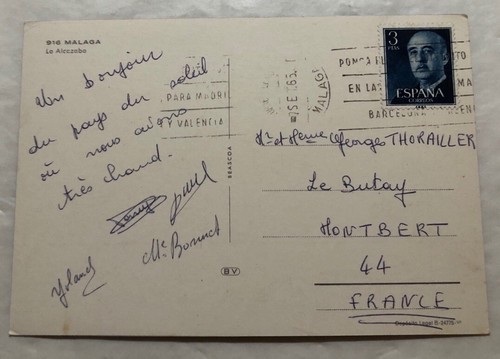 916 MALAGA
La Alcazaba
Un bonjour
du pays du soleil
où nous avons
très chaud.
Paul
Mc Bonnet
Yoland
PARA MADRI
Y VALENCIA
MALAG
PONGA
EN LA
BARCELONA
BEASCOA
BV
3
PTAS
ESPAÑA
CORREOS
Mr et Mme Georges THORAILLER
Le Butay
MONTBERT
44
FRANCE
Depósito Legal B.